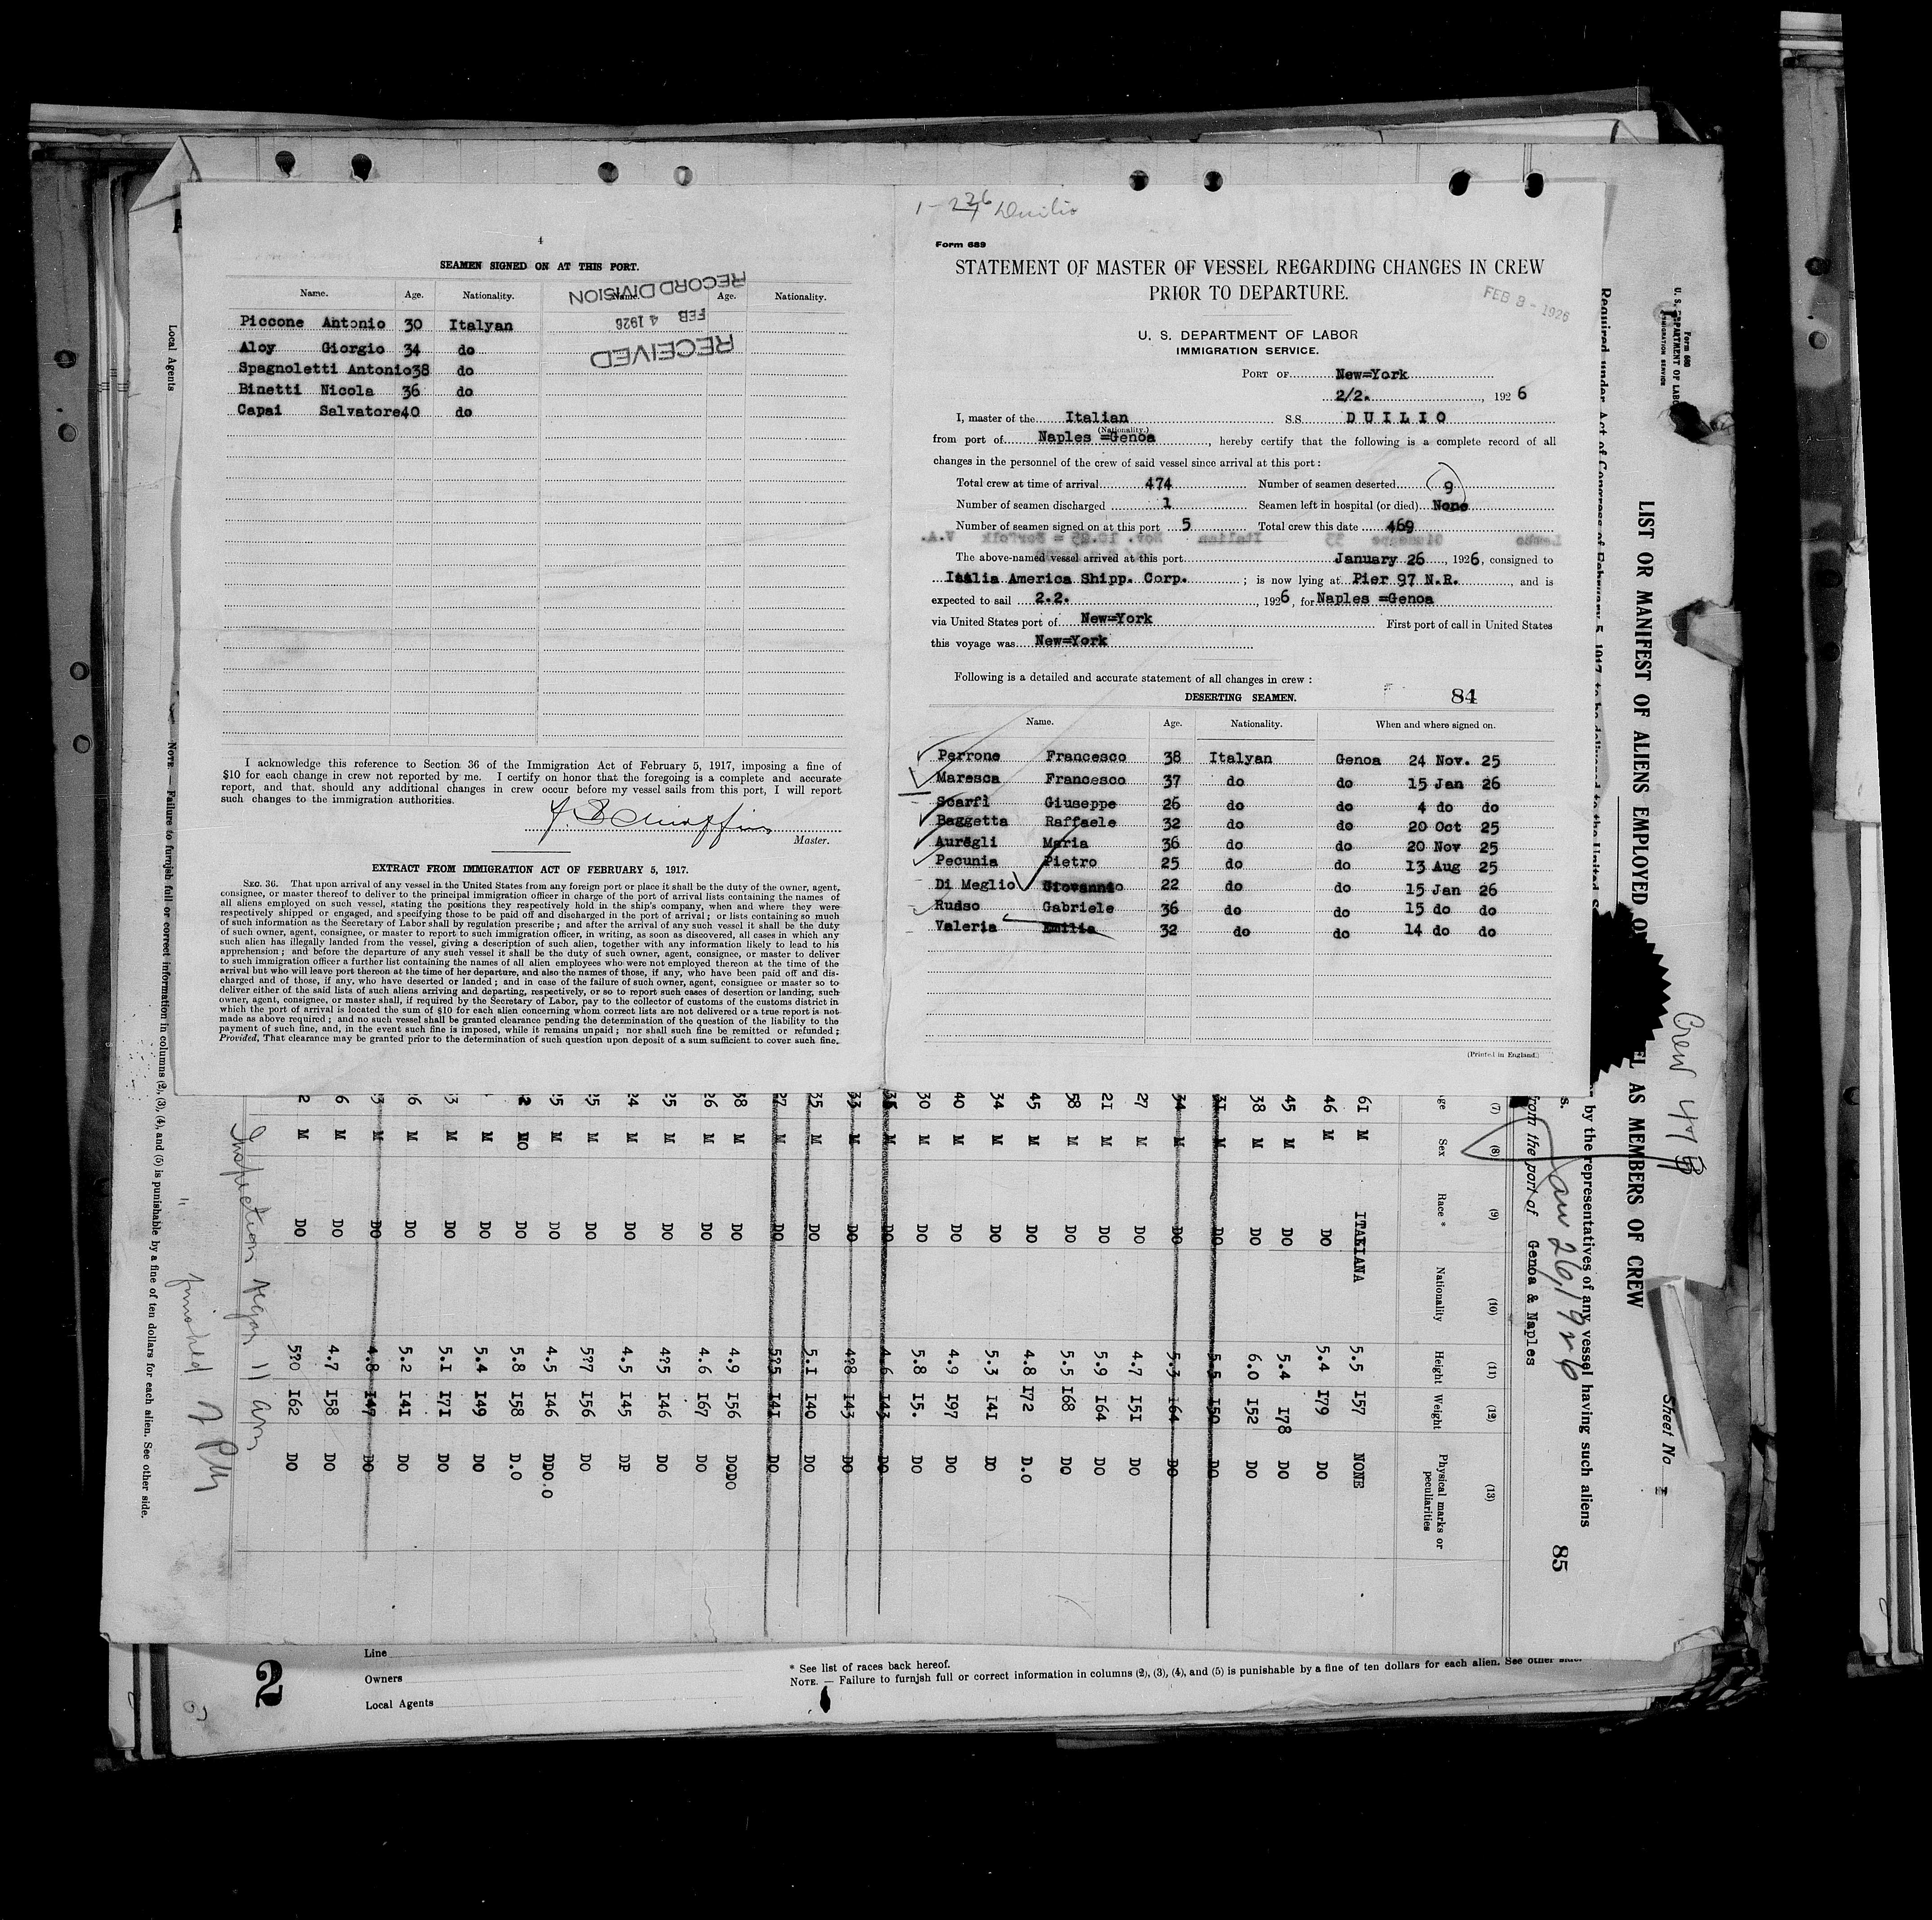 4
SEAMEN SIGNED ON AT THIS PORT.
Name. Age. Nationality. Name. Age. Nationality.
RECORD DIVISION
FEB 4 1926
RECEIVED
Piccone Antonio 30 Italyan
Aloy Giorgio 34 do
Spagnoletti Antonio38 do
Binetti Nicola 36 do
Capai Salvatore40 do
I acknowledge this reference to Section 36 of the Immigration Act of February 5, 1917, imposing a fine of
$10 for each change in crew not reported by me. I certify on honor that the foregoing is a complete and accurate
report, and that. should any additional changes in crew occur before my vessel sails from this port, I will report
such changes to the immigration authorities.
Master.
EXTRACT FROM IMMIGRATION ACT OF FEBRUARY 5, 1917.
SEC. 36. That upon arrival of any vessel in the United States from any foreign port or place it shall be the duty of the owner, agent,
consignee, or master thereof to deliver to the principal immigration officer in charge of the port of arrival lists containing the names of
all aliens employed on such vessel, stating the positions they respectively hold in the ship's company, when and where they were
respectively shipped or engaged, and specifying those to be paid off and discharged in the port of arrival; or lists containing so much
of such information as the Secretary of Labor shall by regulation prescribe; and after the arrival of any such vessel it shall be the duty
of such owner, agent, consignee, or master to report to such immigration officer, in writing, as soon as discovered, all cases in which any
such alien has illegally landed from the vessel, giving a description of such alien, together with any information likely to lead to his
apprehension; and before the departure of any such vessel it shall be the duty of such owner, agent, consignee, or master to deliver
to such immigration officer a further list containing the names of all alien employees who were not employed thereon at the time of the
arrival but who will leave port thereon at the time of her departure, and also the names of those, if any, who have been paid off and dis-
charged and of those, if any, who have deserted or landed; and in case of the failure of such owner, agent, consignee or master so to
deliver either of the said lists of such aliens arriving and departing, respectively, or so to report such cases of desertion or landing, such
owner, agent, consignee, or master shall, if required by the Secretary of Labor, pay to the collector of customs of the customs district in
which the port of arrival is located the sum of $10 for each alien concerning whom correct lists are not delivered or a true report is not
made as above required; and no such vessel shall be granted clearance pending the determination of the question of the liability to the
payment of such fine, and, in the event such fine is imposed, while it remains unpaid; nor shall such fine be remitted or refunded;
Provided, That clearance may be granted prior to the determination of such question upon deposit of a sum sufficient to cover such fine.
Duilio
Form 689
STATEMENT OF MASTER OF VESSEL REGARDING CHANGES IN CREW
PRIOR TO DEPARTURE.
FEB 8 - 1926
U. S. DEPARTMENT OF LABOR
IMMIGRATION SERVICE.
PORT OF New=York
2/2. , 1926
I, master of the Italian S.S. DUILIO
(Nationality.)
from port of Naples =Genoa, hereby certify that the following is a complete record of all
changes in the personnel of the crew of said vessel since arrival at this port:
Total crew at time of arrival 474 Number of seamen deserted 9
Number of seamen discharged 1 Seamen left in hospital (or died) None
Number of seamen signed on at this port 5 Total crew this date 469
The above-named vessel arrived at this port January 26, 1926, consigned to
Italia America Shipp. Corp. ; is now lying at Pier 97 N.R. , and is
expected to sail 2.2. , 1926, for Naples =Genoa
via United States port of New=York First port of call in United States
this voyage was New=York
Following is a detailed and accurate statement of all changes in crew:
DESERTING SEAMEN. 84
Name. Age. Nationality. When and where signed on.
Perrone Francesco 38 Italyan Genoa 24 Nov. 25
Maresca Francesco 37 do do 15 Jan 26
Scarfì Giuseppe 26 do do 4 do do
Baggetta Raffaele 32 do do 20 Oct 25
Auregli Maria 36 do do 20 Nov 25
Pecunia Pietro 25 do do 13 Aug 25
Di Meglio Giovanni 22 do do 15 Jan 26
Russo Gabriele 36 do do 15 do do
Valeria Emilia 32 do do 14 do do
(Printed in England.)
Form 680
U. S. DEPARTMENT OF LABOR
IMMIGRATION SERVICE
LIST OR MANIFEST OF ALIENS EMPLOYED ON
EL AS MEMBERS OF CREW
Required under Act of Congress of February 5, 1917, to be delivered to the United S
by the representatives of any vessel having such aliens
from the port of Genoa & Naples
Jan 26, 1926
Crew 473
Sheet No
85
(7) (8) (9) (10) (11) (12) (13)
ge Sex Race * Nationality Height Weight Physical marks or peculiarities
61 M ITALIANA 5.5 I57 NONE
46 M DO 5.4 I79 DO
45 M DO 5.4 I78 DO
38 M DO 6.0 I52 DO
3I M DO 5.5 I50 DO
34 M DO 5.3 I64 DO
27 M DO 4.7 I5I DO
2I M DO 5.9 I64 DO
58 M DO 5.5 I68 DO
45 M DO 4.8 I72 D.O
34 M DO 5.3 I4I DO
40 M DO 4.9 I97 DO
30 M DO 5.8 I5. DO
M DO 4.6 I43 DO
33 M DO 4?8 I43 DO
25 M DO 5.I I40 DO
27 M DO 5?5 I4I DO
38 M DO 4.9 I56 DODO
26 M DO 4.6 I67 DO
25 M DO 4?5 I46 DO
24 M DO 4.5 I45 DP
25 M DO 5?7 I56 DO
25 M DO 4.5 I46 DDO.O
MO DO 5.8 I58 D.O
M DO 5.4 I49 DO
3 M DO 5.I I7I DO
6 M DO 5.2 I4I DO
3 M DO 4.8 I47 DO
6 M DO 4.7 I58 DO
2 M DO 5?0 I62 DO
Inspection began 11 am
finished 2 PM
Local Agents
NOTE. — Failure to furnjsh full or correct information in columns (2), (3), (4), and (5) is punishable by a fine of ten dollars for each alien. See other side.
2
Line
Owners
Local Agents
* See list of races back hereof.
NOTE. — Failure to furnjsh full or correct information in columns (2), (3), (4), and (5) is punishable by a fine of ten dollars for each alien. See other side.